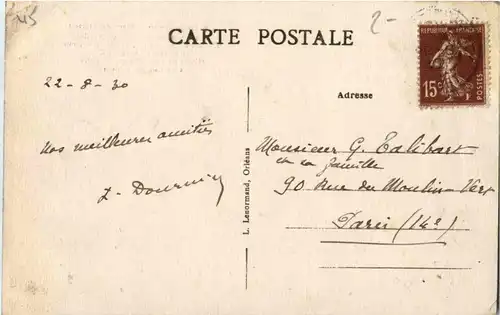 45
2-
CARTE POSTALE
REPUBLIQUE FRANÇAISE
15c
POSTES
22-8-30
Adresse
Nos meilleures amitiés
Monsieur G. Talibart
et sa famille
90 Rue du Moulin-Vert
Paris (14e)
L. Lenormand, Orléans